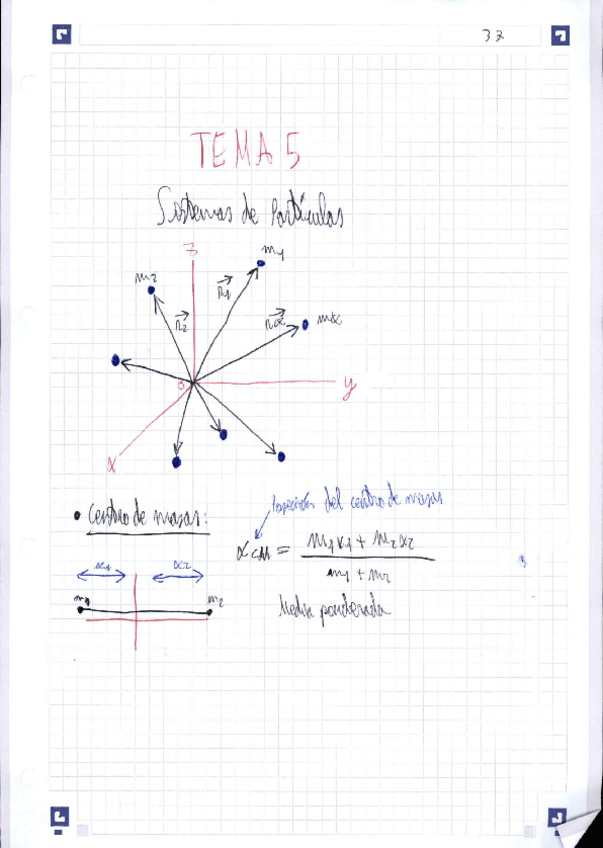 37
TEMA 5
Sistemas de Partículas
z
m1
m2
r1
r2
rα
mα
o
y
x
Posición del centro de masas
• Centro de masas:
xCM = m1x1 + m2x2 / m1 + m2
x1 x2
m1 m2
Media ponderada